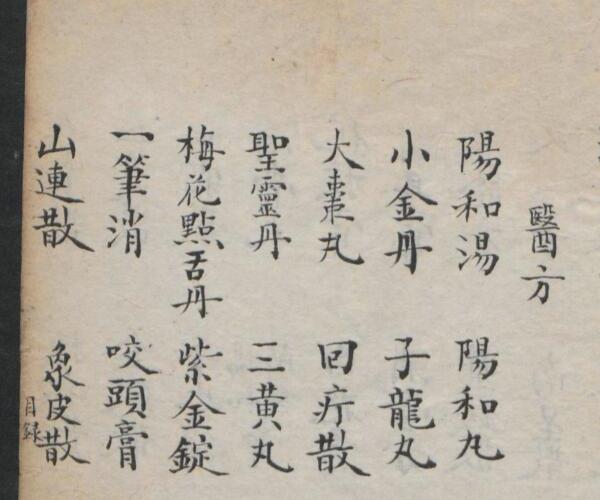 醫方
陽和湯 陽和丸
小金丹 子龍丸
大棗丸 回疔散
聖靈丹 三黃丸
梅花點舌丹 紫金錠
一筆消 咬頭膏
山連散 象皮散
目録